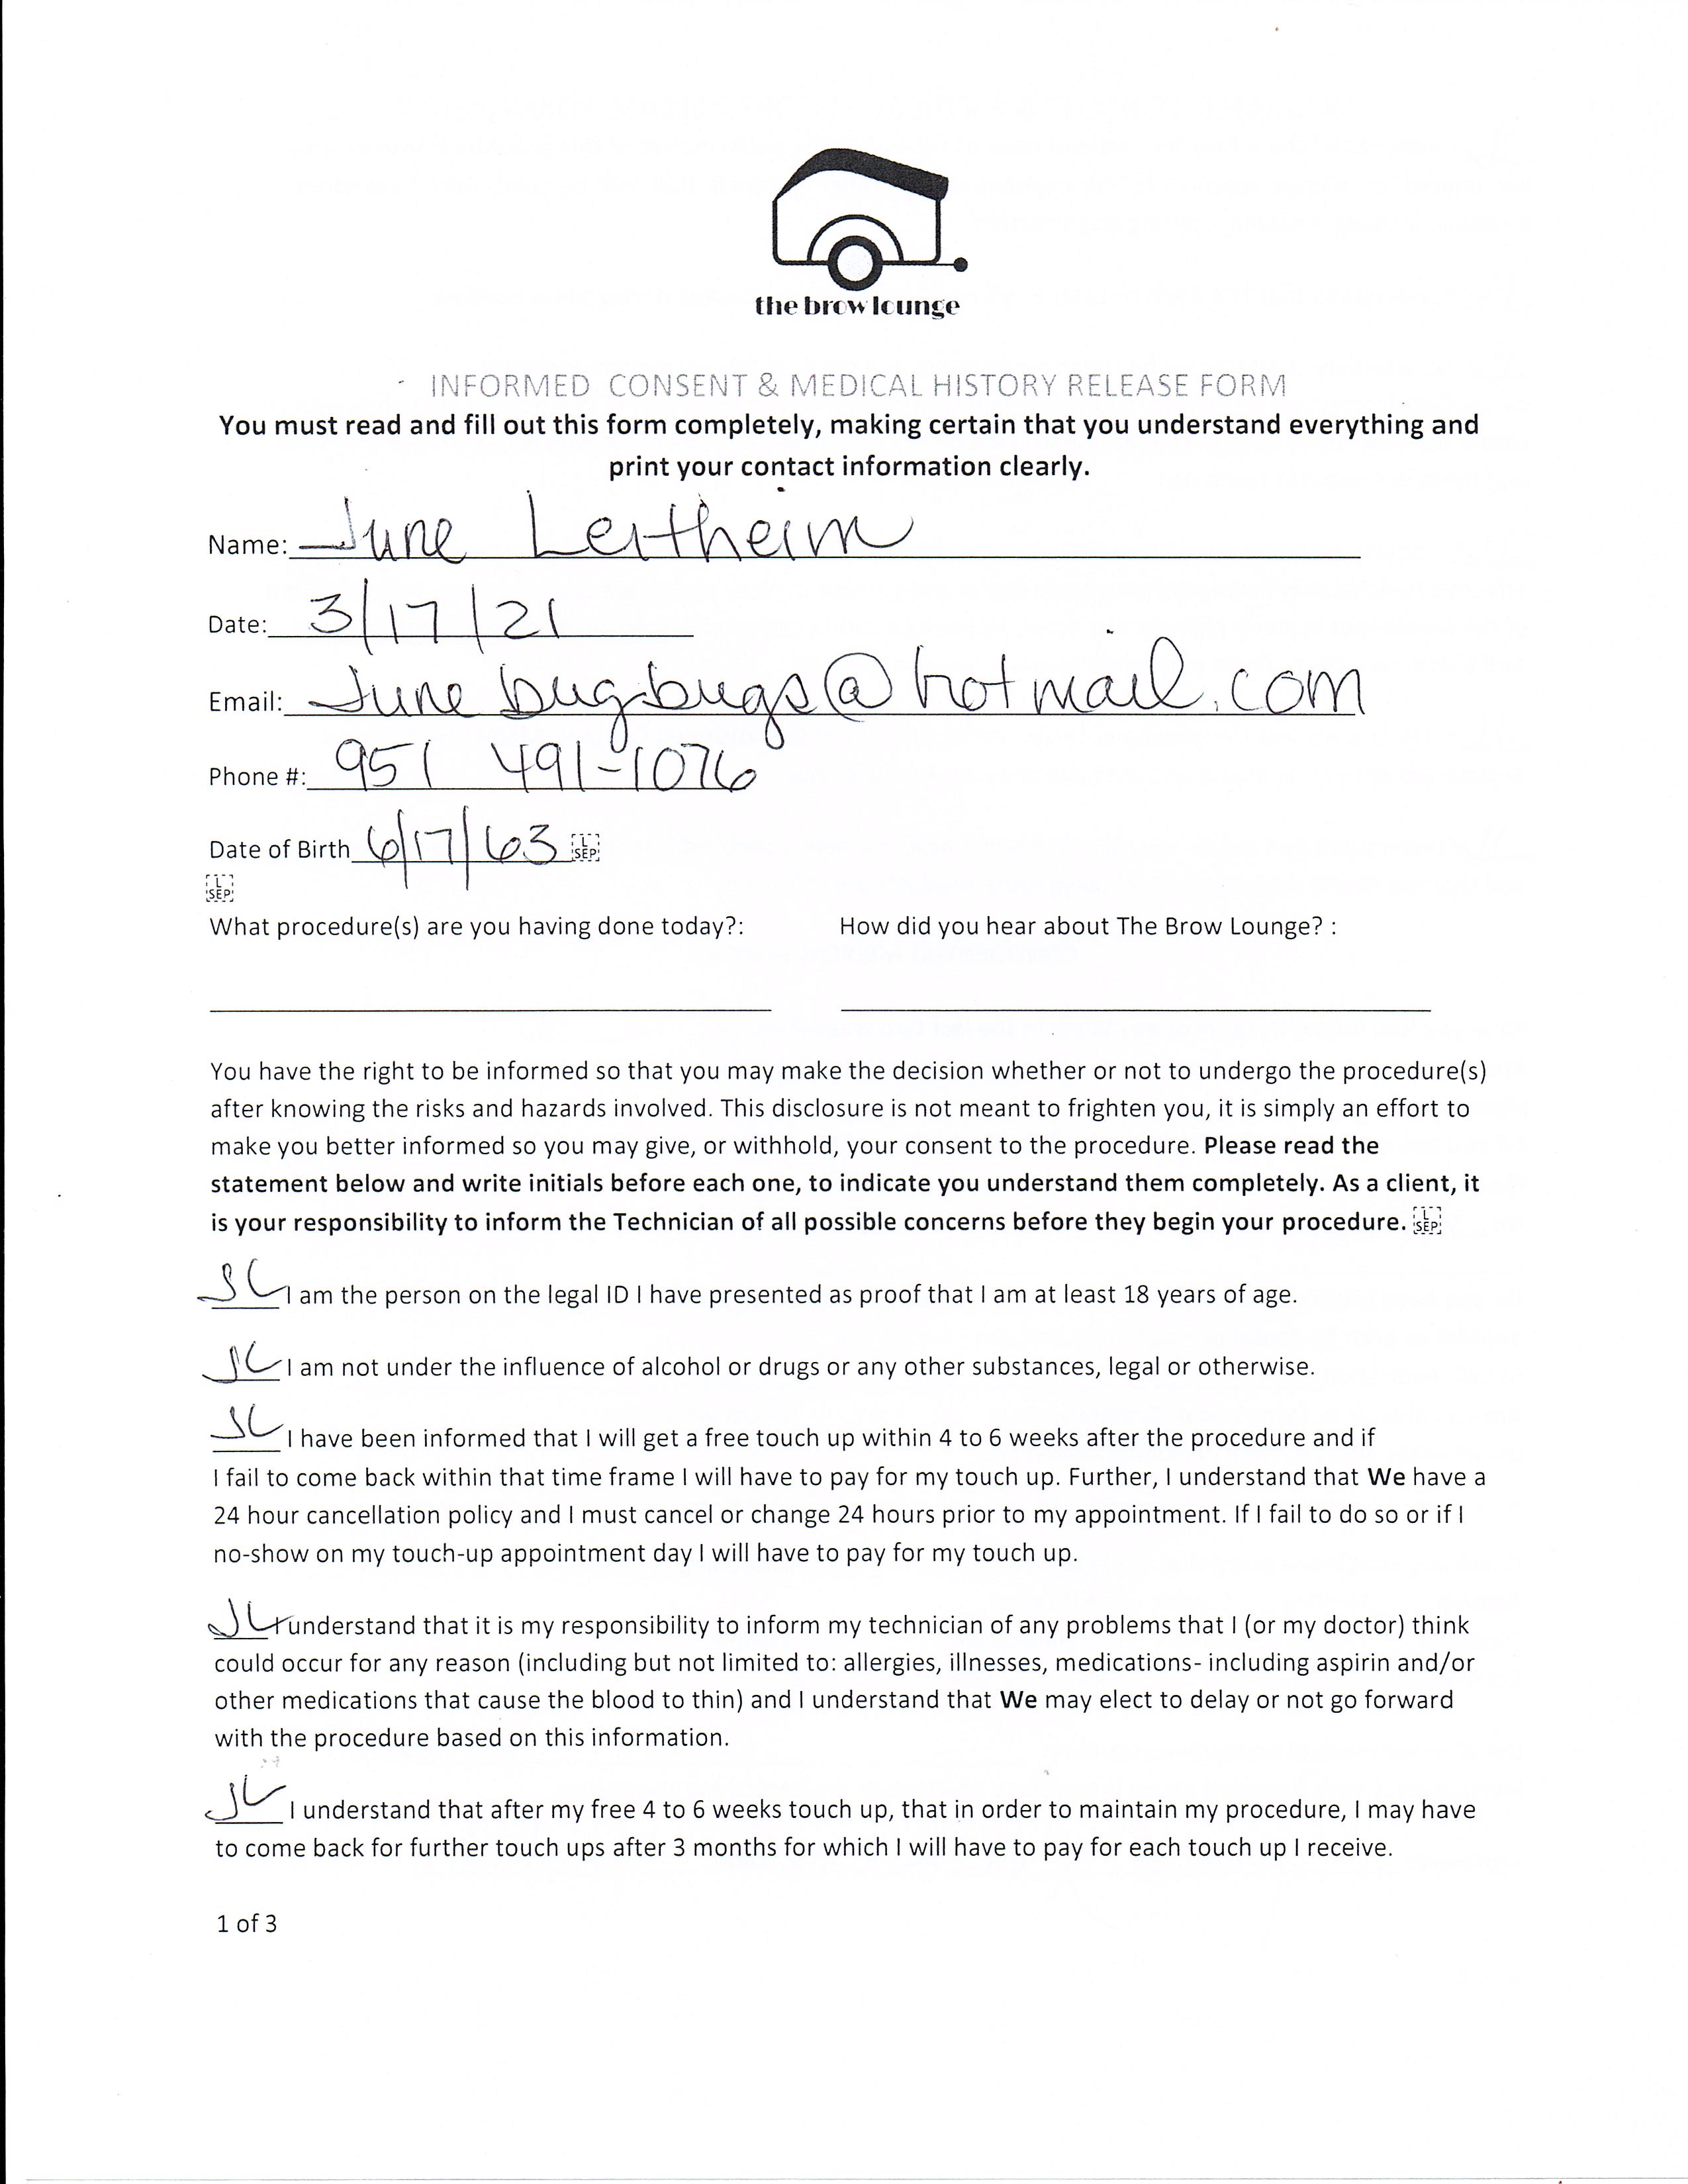 the brow lounge
INFORMED CONSENT & MEDICAL HISTORY RELEASE FORM
You must read and fill out this form completely, making certain that you understand everything and
print your contact information clearly.
Name: June Leitheim
Date: 3/17/21
Email: Junebugbugs@hotmail.com
Phone #: 951 491-1076
Date of Birth 6/17/63 L SEP
L SEP
What procedure(s) are you having done today?: How did you hear about The Brow Lounge? :
You have the right to be informed so that you may make the decision whether or not to undergo the procedure(s)
after knowing the risks and hazards involved. This disclosure is not meant to frighten you, it is simply an effort to
make you better informed so you may give, or withhold, your consent to the procedure. Please read the
statement below and write initials before each one, to indicate you understand them completely. As a client, it
is your responsibility to inform the Technician of all possible concerns before they begin your procedure. L SEP
JL I am the person on the legal ID I have presented as proof that I am at least 18 years of age.
JL I am not under the influence of alcohol or drugs or any other substances, legal or otherwise.
JL I have been informed that I will get a free touch up within 4 to 6 weeks after the procedure and if
I fail to come back within that time frame I will have to pay for my touch up. Further, I understand that We have a
24 hour cancellation policy and I must cancel or change 24 hours prior to my appointment. If I fail to do so or if I
no-show on my touch-up appointment day I will have to pay for my touch up.
JL I understand that it is my responsibility to inform my technician of any problems that I (or my doctor) think
could occur for any reason (including but not limited to: allergies, illnesses, medications- including aspirin and/or
other medications that cause the blood to thin) and I understand that We may elect to delay or not go forward
with the procedure based on this information.
JL I understand that after my free 4 to 6 weeks touch up, that in order to maintain my procedure, I may have
to come back for further touch ups after 3 months for which I will have to pay for each touch up I receive.
1 of 3